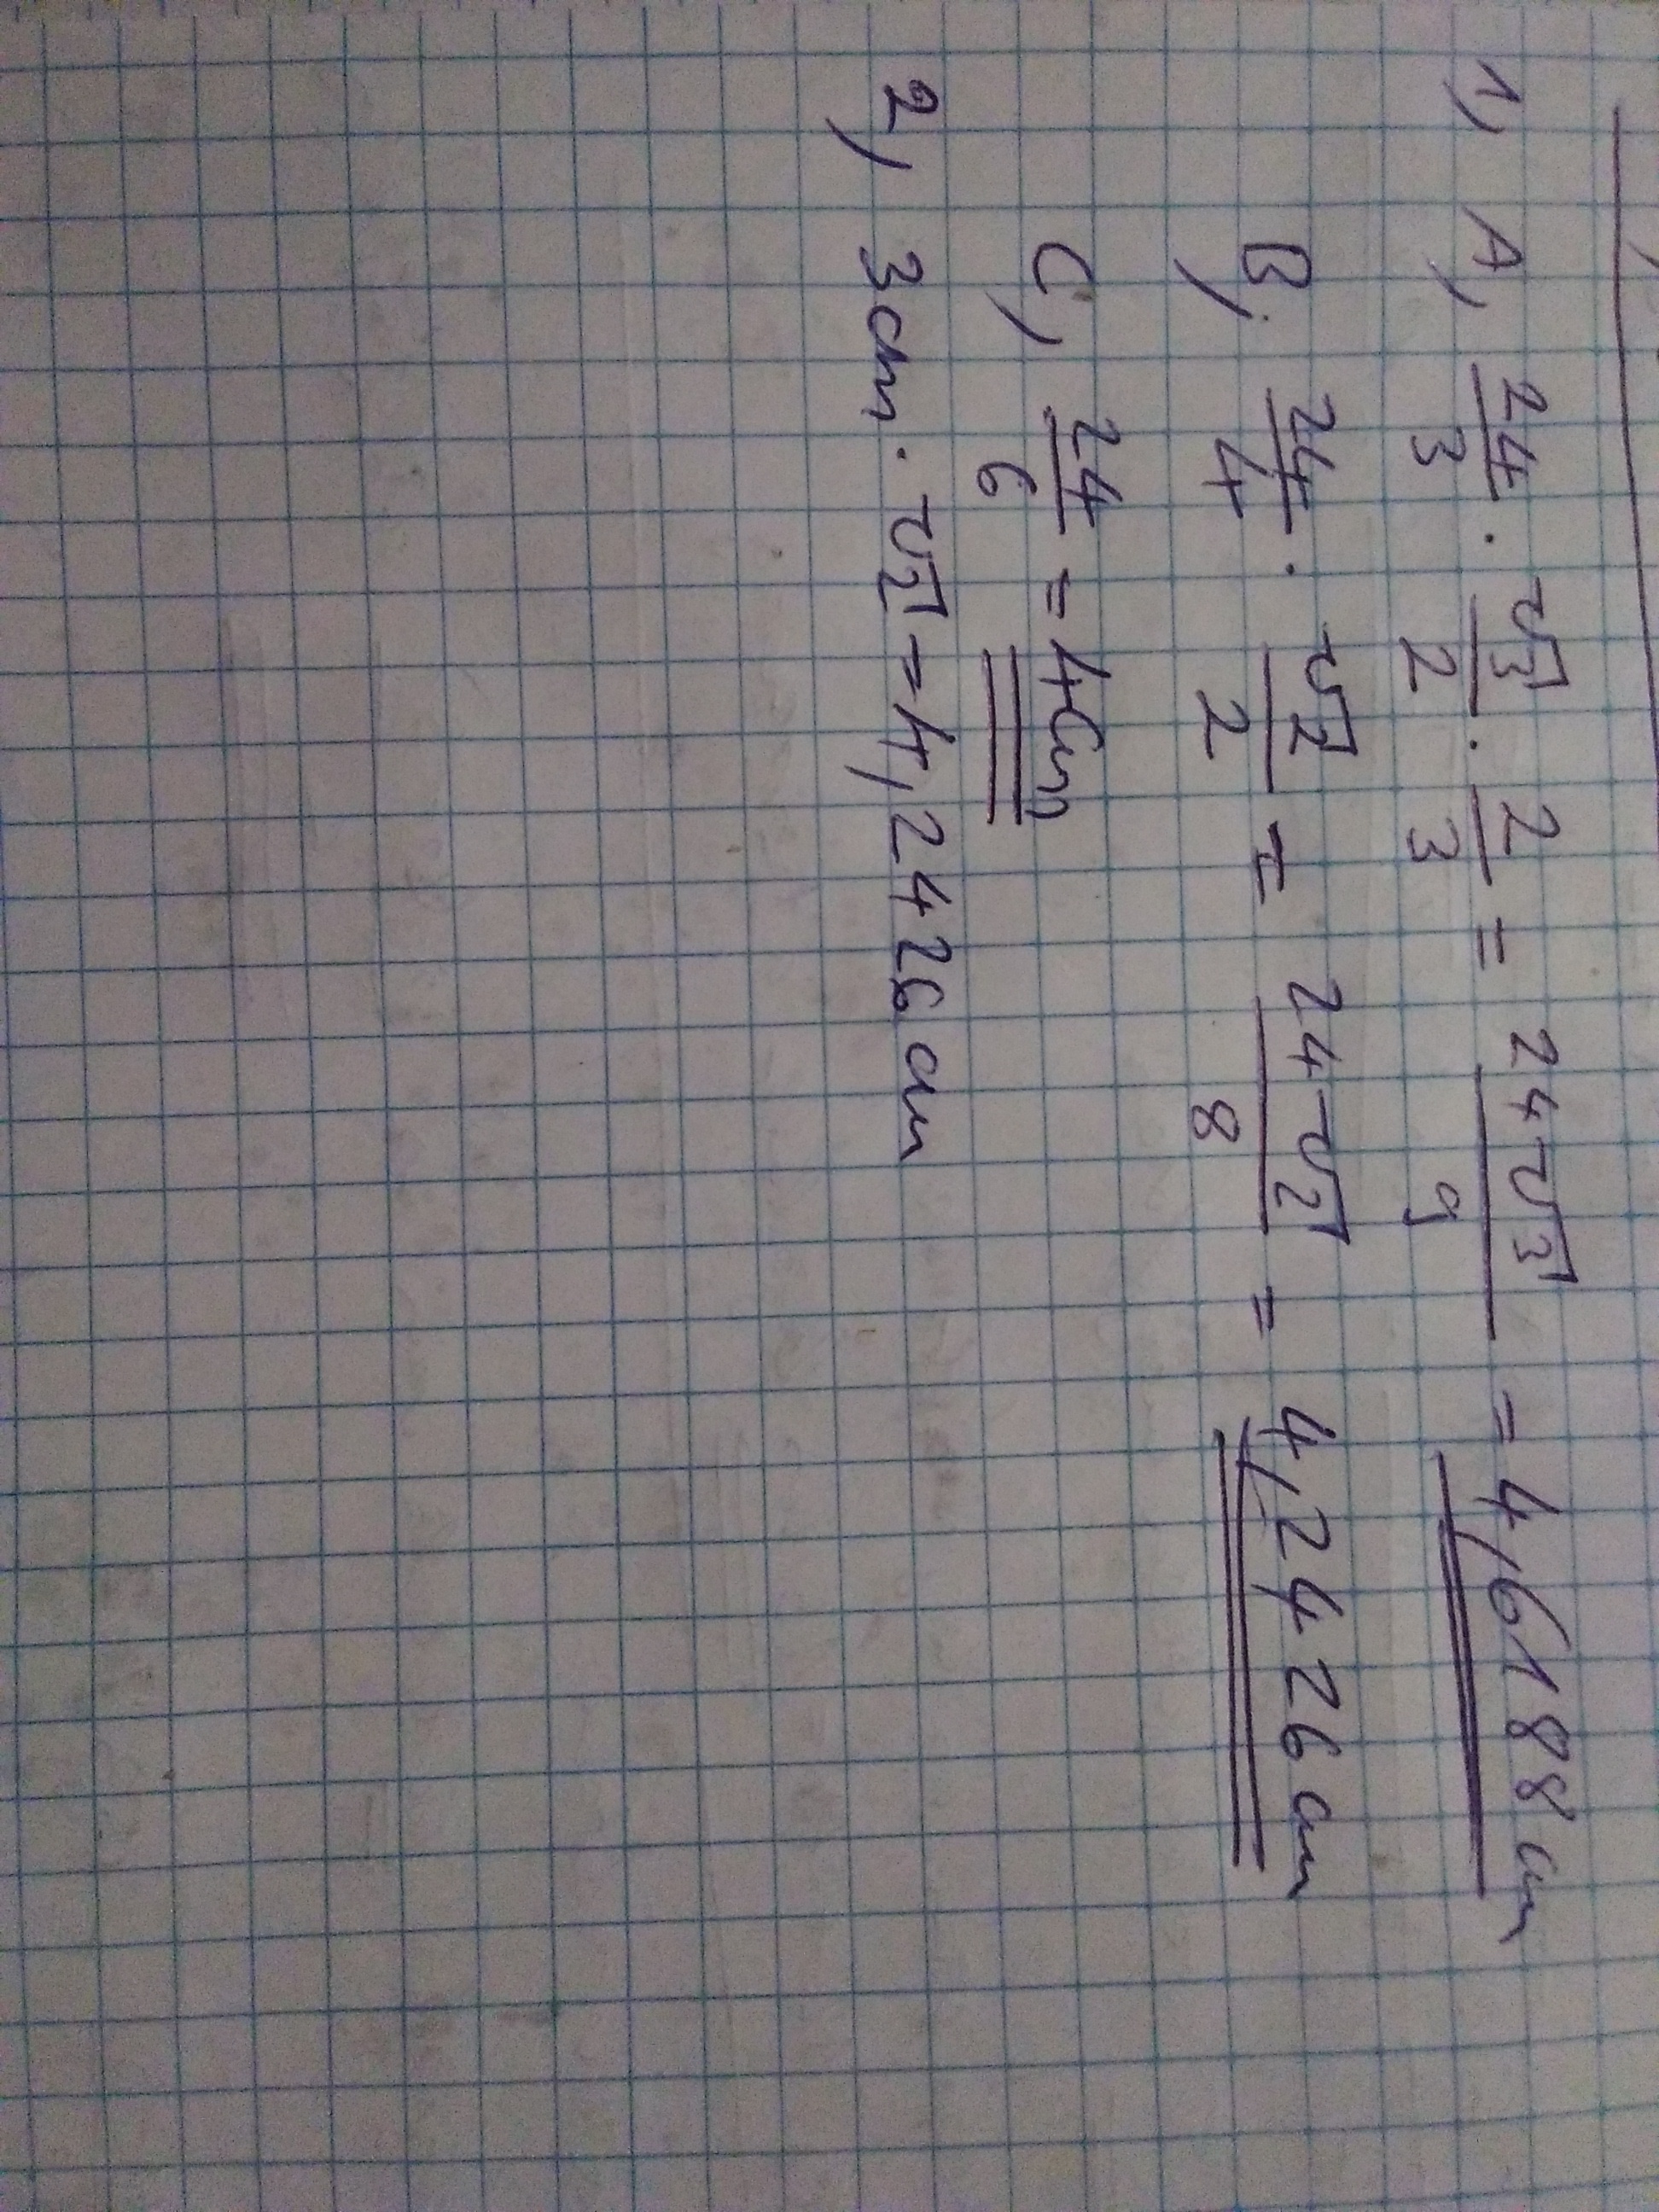 1) A, 24/3 · √3/2 · 2/3 = 24√3/9 = 4,6188 cm
B, 24/4 · √2/2 = 24√2/8 = 4,2426 cm
C, 24/6 = 4cm
2, 3cm · √2 = 4,2426 cm